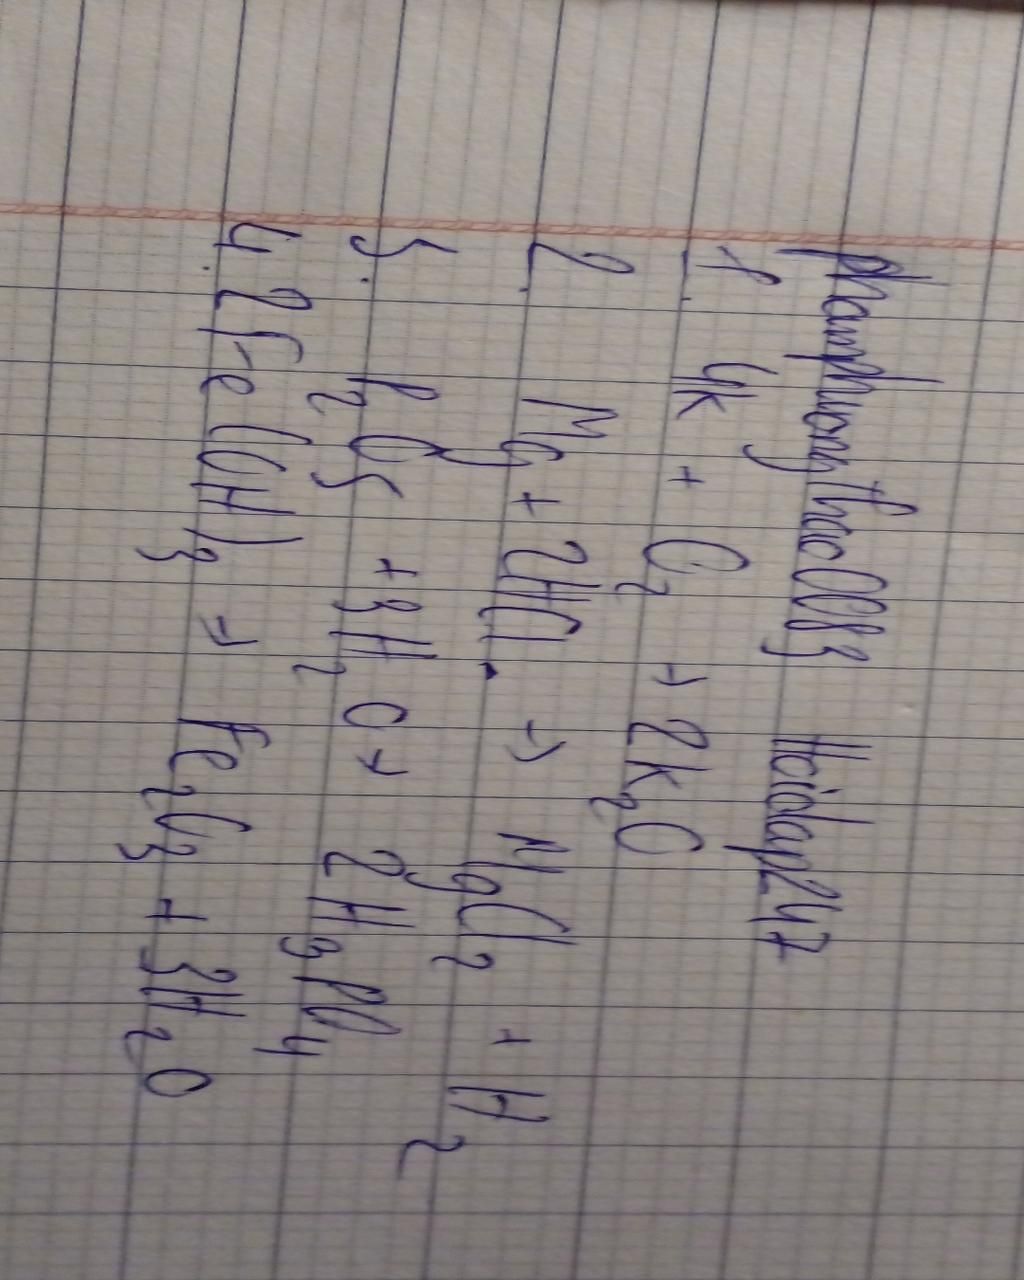 phamphuongthao0083 Hoidap247
1. 4K + O₂ → 2K₂O
2. Mg + 2HCl → MgCl₂ + H₂
3. P₂O₅ + 3H₂O → 2H₃PO₄
4. 2Fe(OH)₃ → Fe₂O₃ + 3H₂O